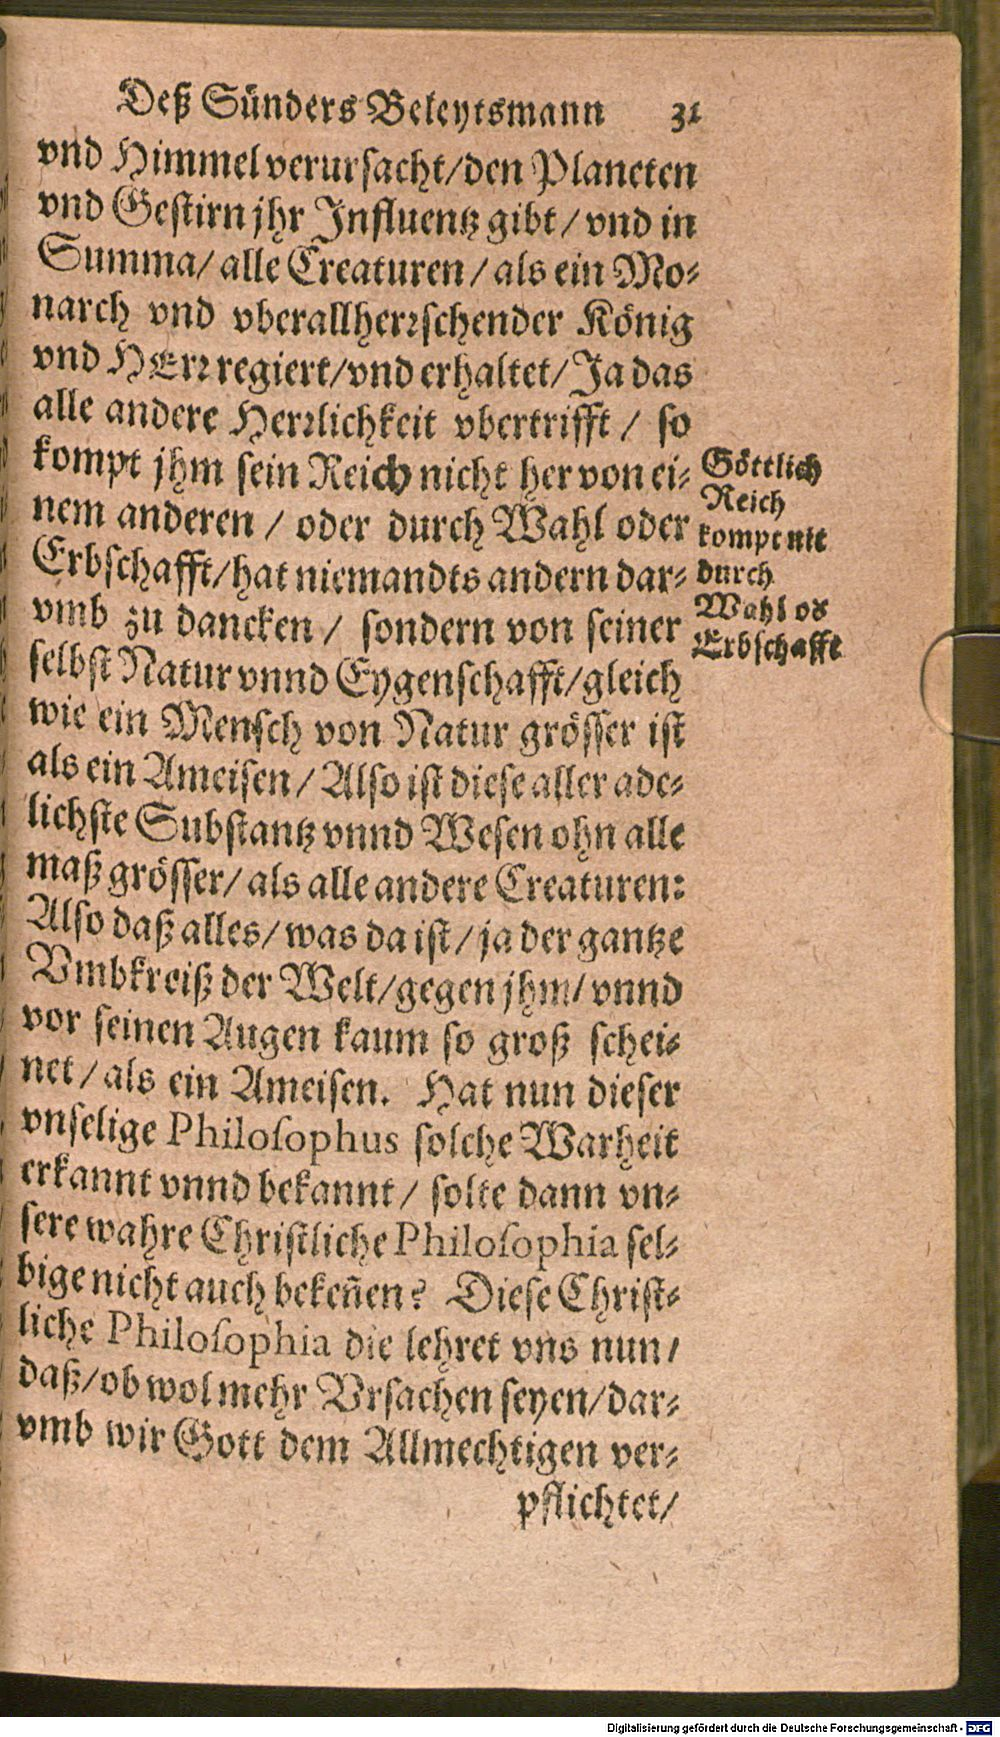 Deß Sünders Beleytsmann 31
vnd Himmel verursacht/den Planeten
vnd Gestirn jhr Influentz gibt/ vnd in
Summa/ alle Creaturen/ als ein Mo⸗
narch vnd vberallherꝛschender König
vnd HErꝛ regiert/vnd erhaltet/Ja das
alle andere Herꝛlichkeit vbertrifft/ so
kompt jhm sein Reich nicht her von ei⸗
nem anderen/ oder durch Wahl oder
Erbschafft/hat niemandts andern dar⸗
vmb zu dancken/ sondern von seiner
selbst Natur vnnd Eygenschafft/gleich
wie ein Mensch von Natur grösser ist
als ein Ameisen/ Also ist diese aller ade⸗
lichste Substantz vnnd Wesen ohn alle
maß grösser/ als alle andere Creaturen:
Also daß alles/ was da ist/ ja der gantze
Vmbkreiß der Welt/gegen jhm/ vnnd
vor seinen Augen kaum so groß schei⸗
net/ als ein Ameisen. Hat nun dieser
vnselige Philoſophus solche Warheit
erkannt vnnd bekannt/ solte dann vn⸗
sere wahre Christliche Philoſophia sel⸗
bige nicht auch bekeñen? Diese Christ⸗
liche Philoſophia die lehret vns nun/
daß/ob wol mehr Vrsachen seyen/dar⸗
vmb wir Gott dem Allmechtigen ver⸗
pflichtet/
Göttlich
Reich
kompt nit
durch
Wahl od
Erbschafft
Digitalisierung gefördert durch die Deutsche Forschungsgemeinschaft - DFG